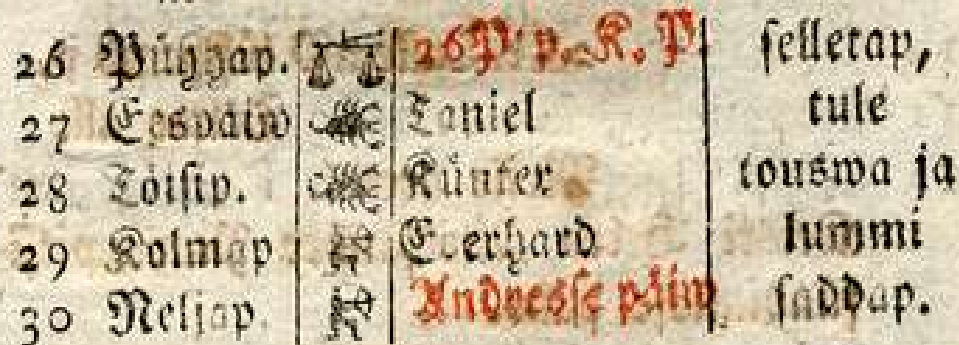 26 Pühhap. 26 P. p. K. P. selletap,
27 Eespäiw Taniel tule
28 Töisip. Künter touswa ja
29 Kolmap Eberhard lummi
30 Neljap. Andresse päiw saddap.